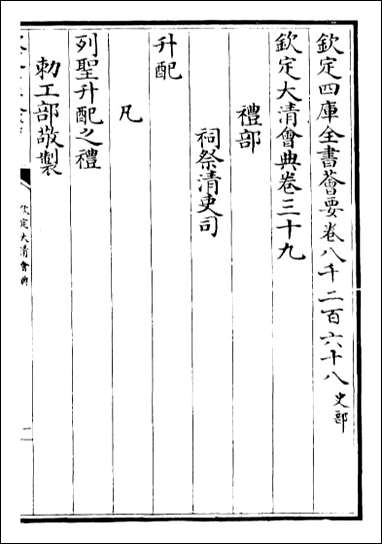 欽定四庫全書薈要卷八千二百六十八 史部
欽定大清會典卷三十九
禮部
祠祭清吏司
升配
凡
列聖升配之禮
勅工部敬製
欽定大清會典